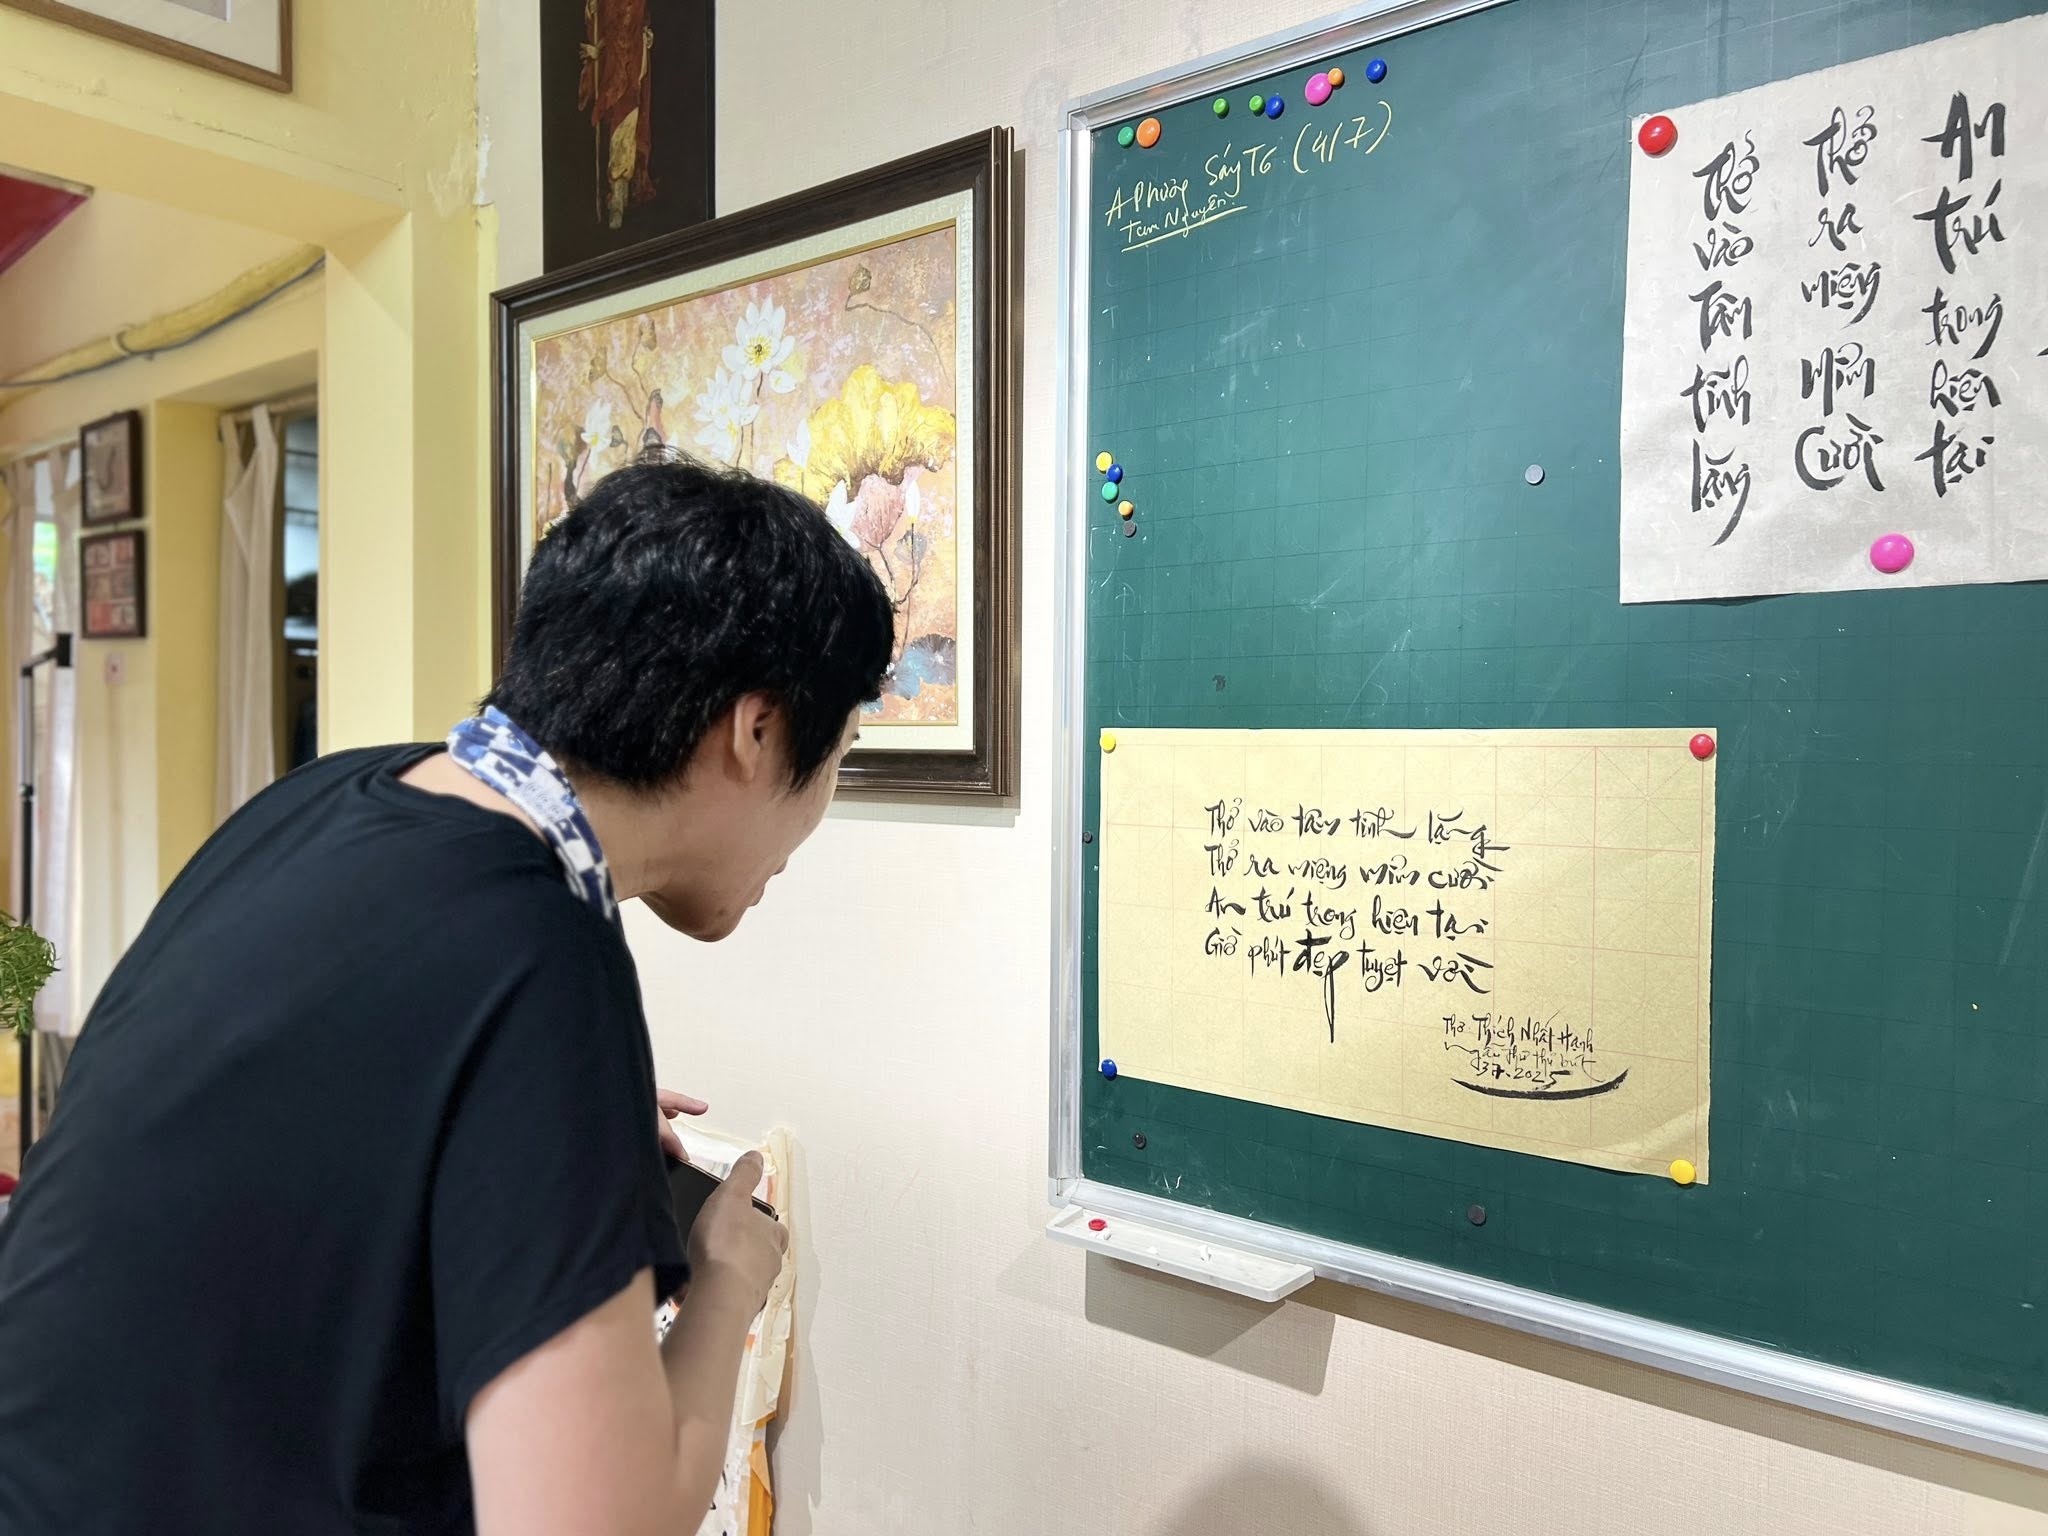 A Phương Sáng T6 (4/7)
Tam Nguyên.
Thở vào Tâm tĩnh lặng
Thở ra miệng mỉm cười
An trú trong hiện tại
Thở vào tâm tĩnh lặng
Thở ra miệng mỉm cười
An trú trong hiện tại
Giờ phút đẹp tuyệt vời
Thơ Thích Nhất Hạnh
thư bút
37.2025